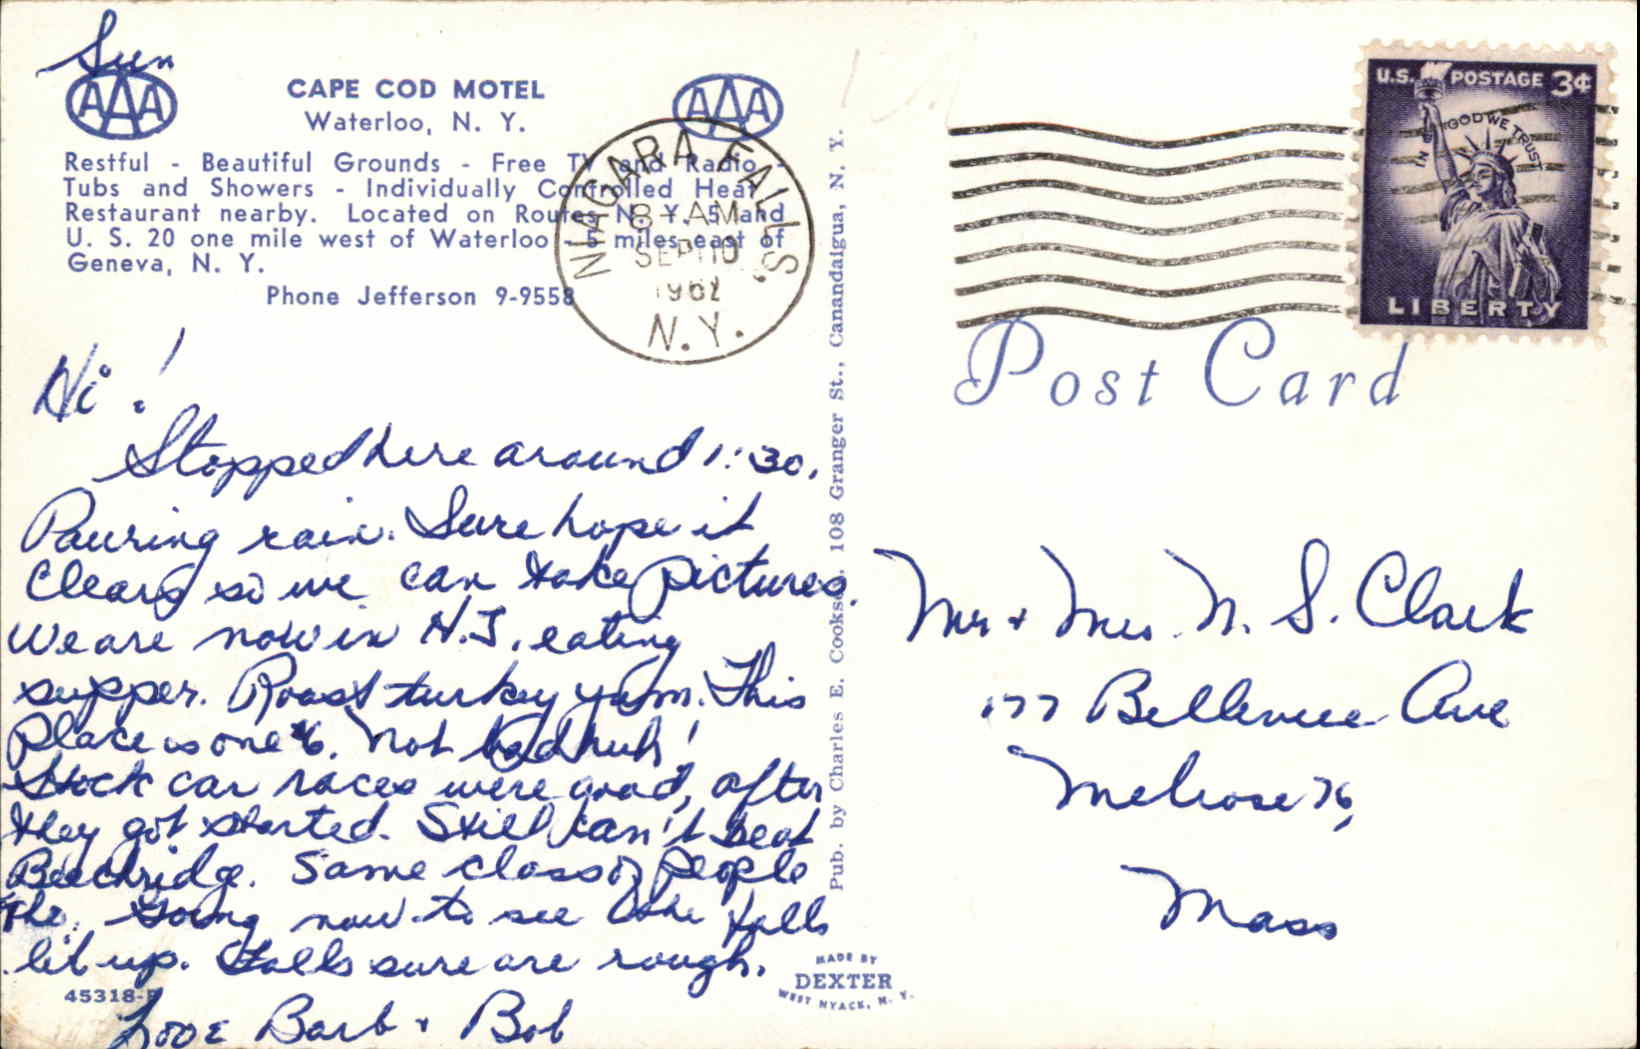 Sun
AAA
CAPE COD MOTEL
AAA
Waterloo, N. Y.
Restful - Beautiful Grounds - Free TV and Radio -
Tubs and Showers - Individually Controlled Heat
Restaurant nearby. Located on Routes N. Y. 5 and
U. S. 20 one mile west of Waterloo - 5 miles east of
Geneva, N. Y.
Phone Jefferson 9-9558
NIAGARA FALLS,
8 - AM
SEP 10
1962
N.Y.
Hi !
Stopped here around 1:30.
Pouring rain. Sure hope it
clears so we can take pictures.
We are now in H.J. eating
supper. Roast turkey yum. This
place is one *6. Not bad huh!
Stock car races were good, after
they got started. Still can't beat
Beechridge. Same class of people
tho. Going now to see the falls
lit up. Falls sure are rough.
45318-B
Love Barb & Bob
Pub. by Charles E. Cookson, 108 Granger St., Canandaigua, N. Y.
MADE BY
DEXTER
WEST NYACK, N. Y.
U.S. POSTAGE 3¢
IN GOD WE TRUST
LIBERTY
Post Card
Mr & Mrs. N. S. Clark
177 Bellevue Ave
Melrose 76,
Mass